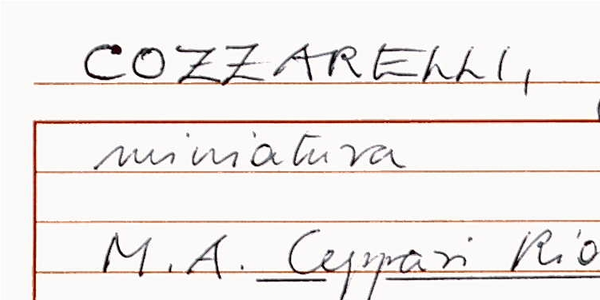 COZZARELLI,
miniatura
M. A. Ceppari Rio